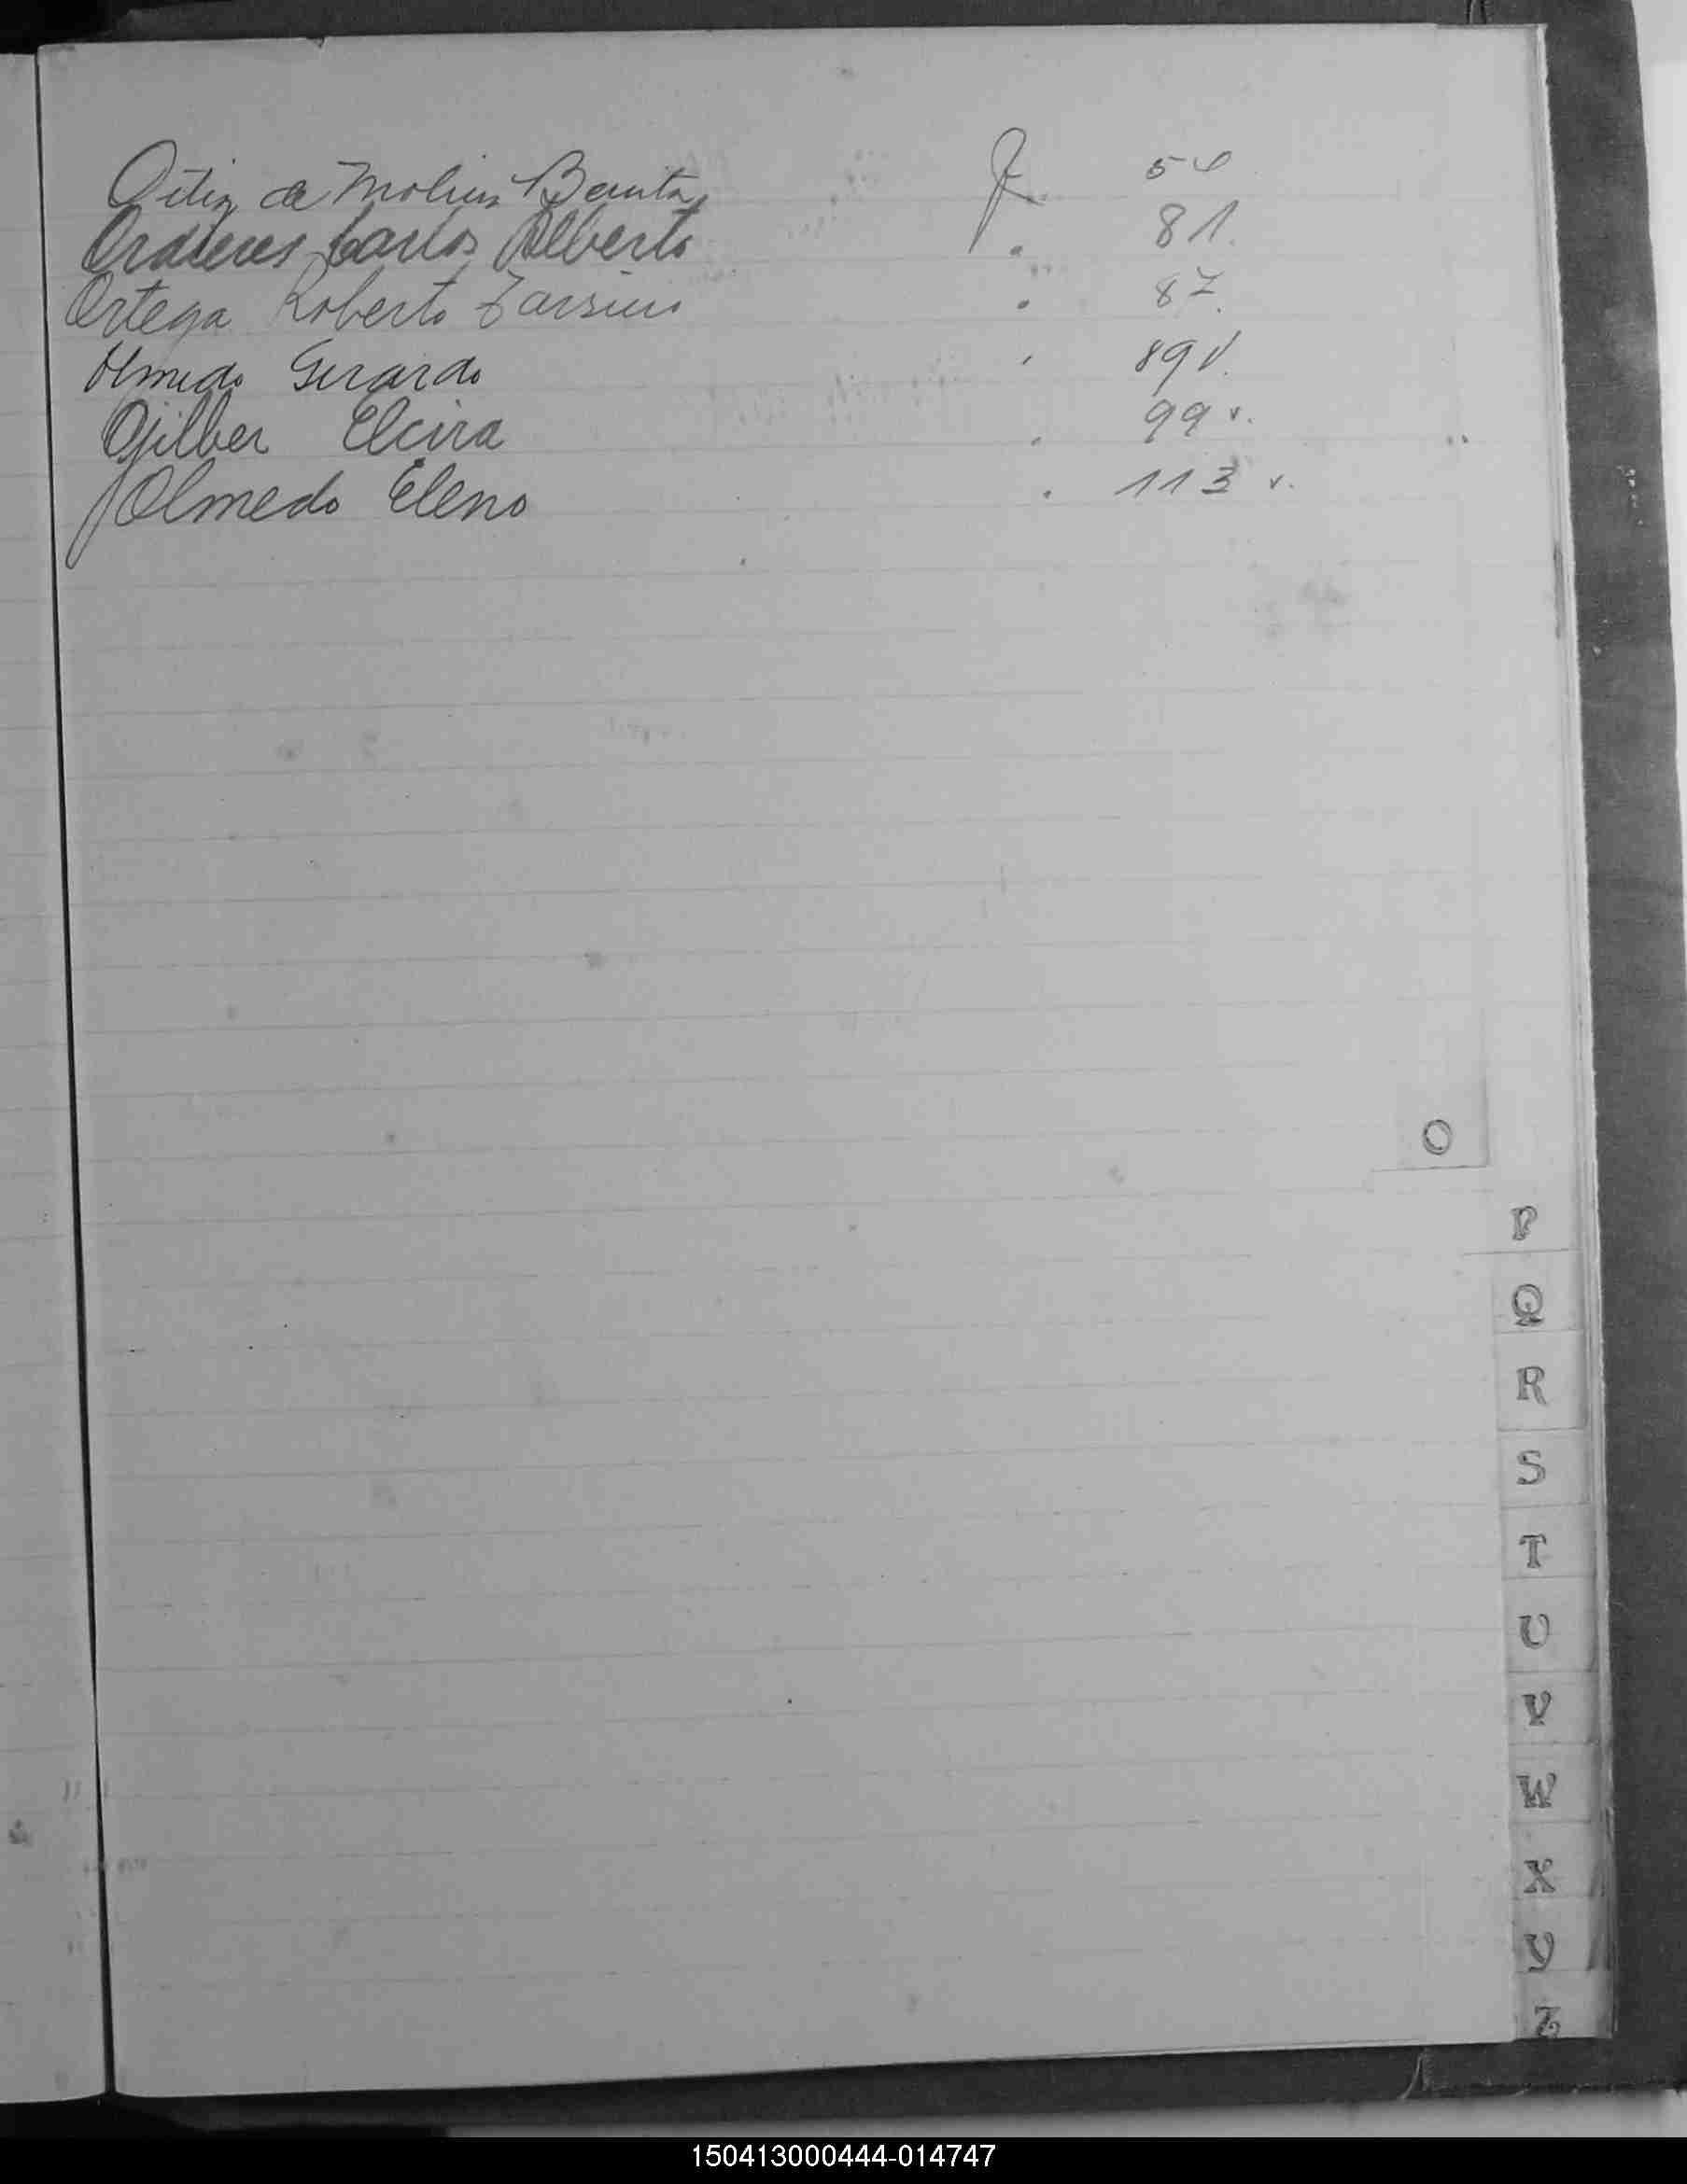 Ortiz de Molina Benita F. 54
Ordenes Carlos Alberto " 81.
Ortega Roberto " 87.
Olmedo Gerardo " 89 v.
Ojilber Elcira " 99 v.
Olmedo Eleno " 113 v.
O
P
Q
R
S
T
U
V
W
X
Y
Z
150413000444-014747